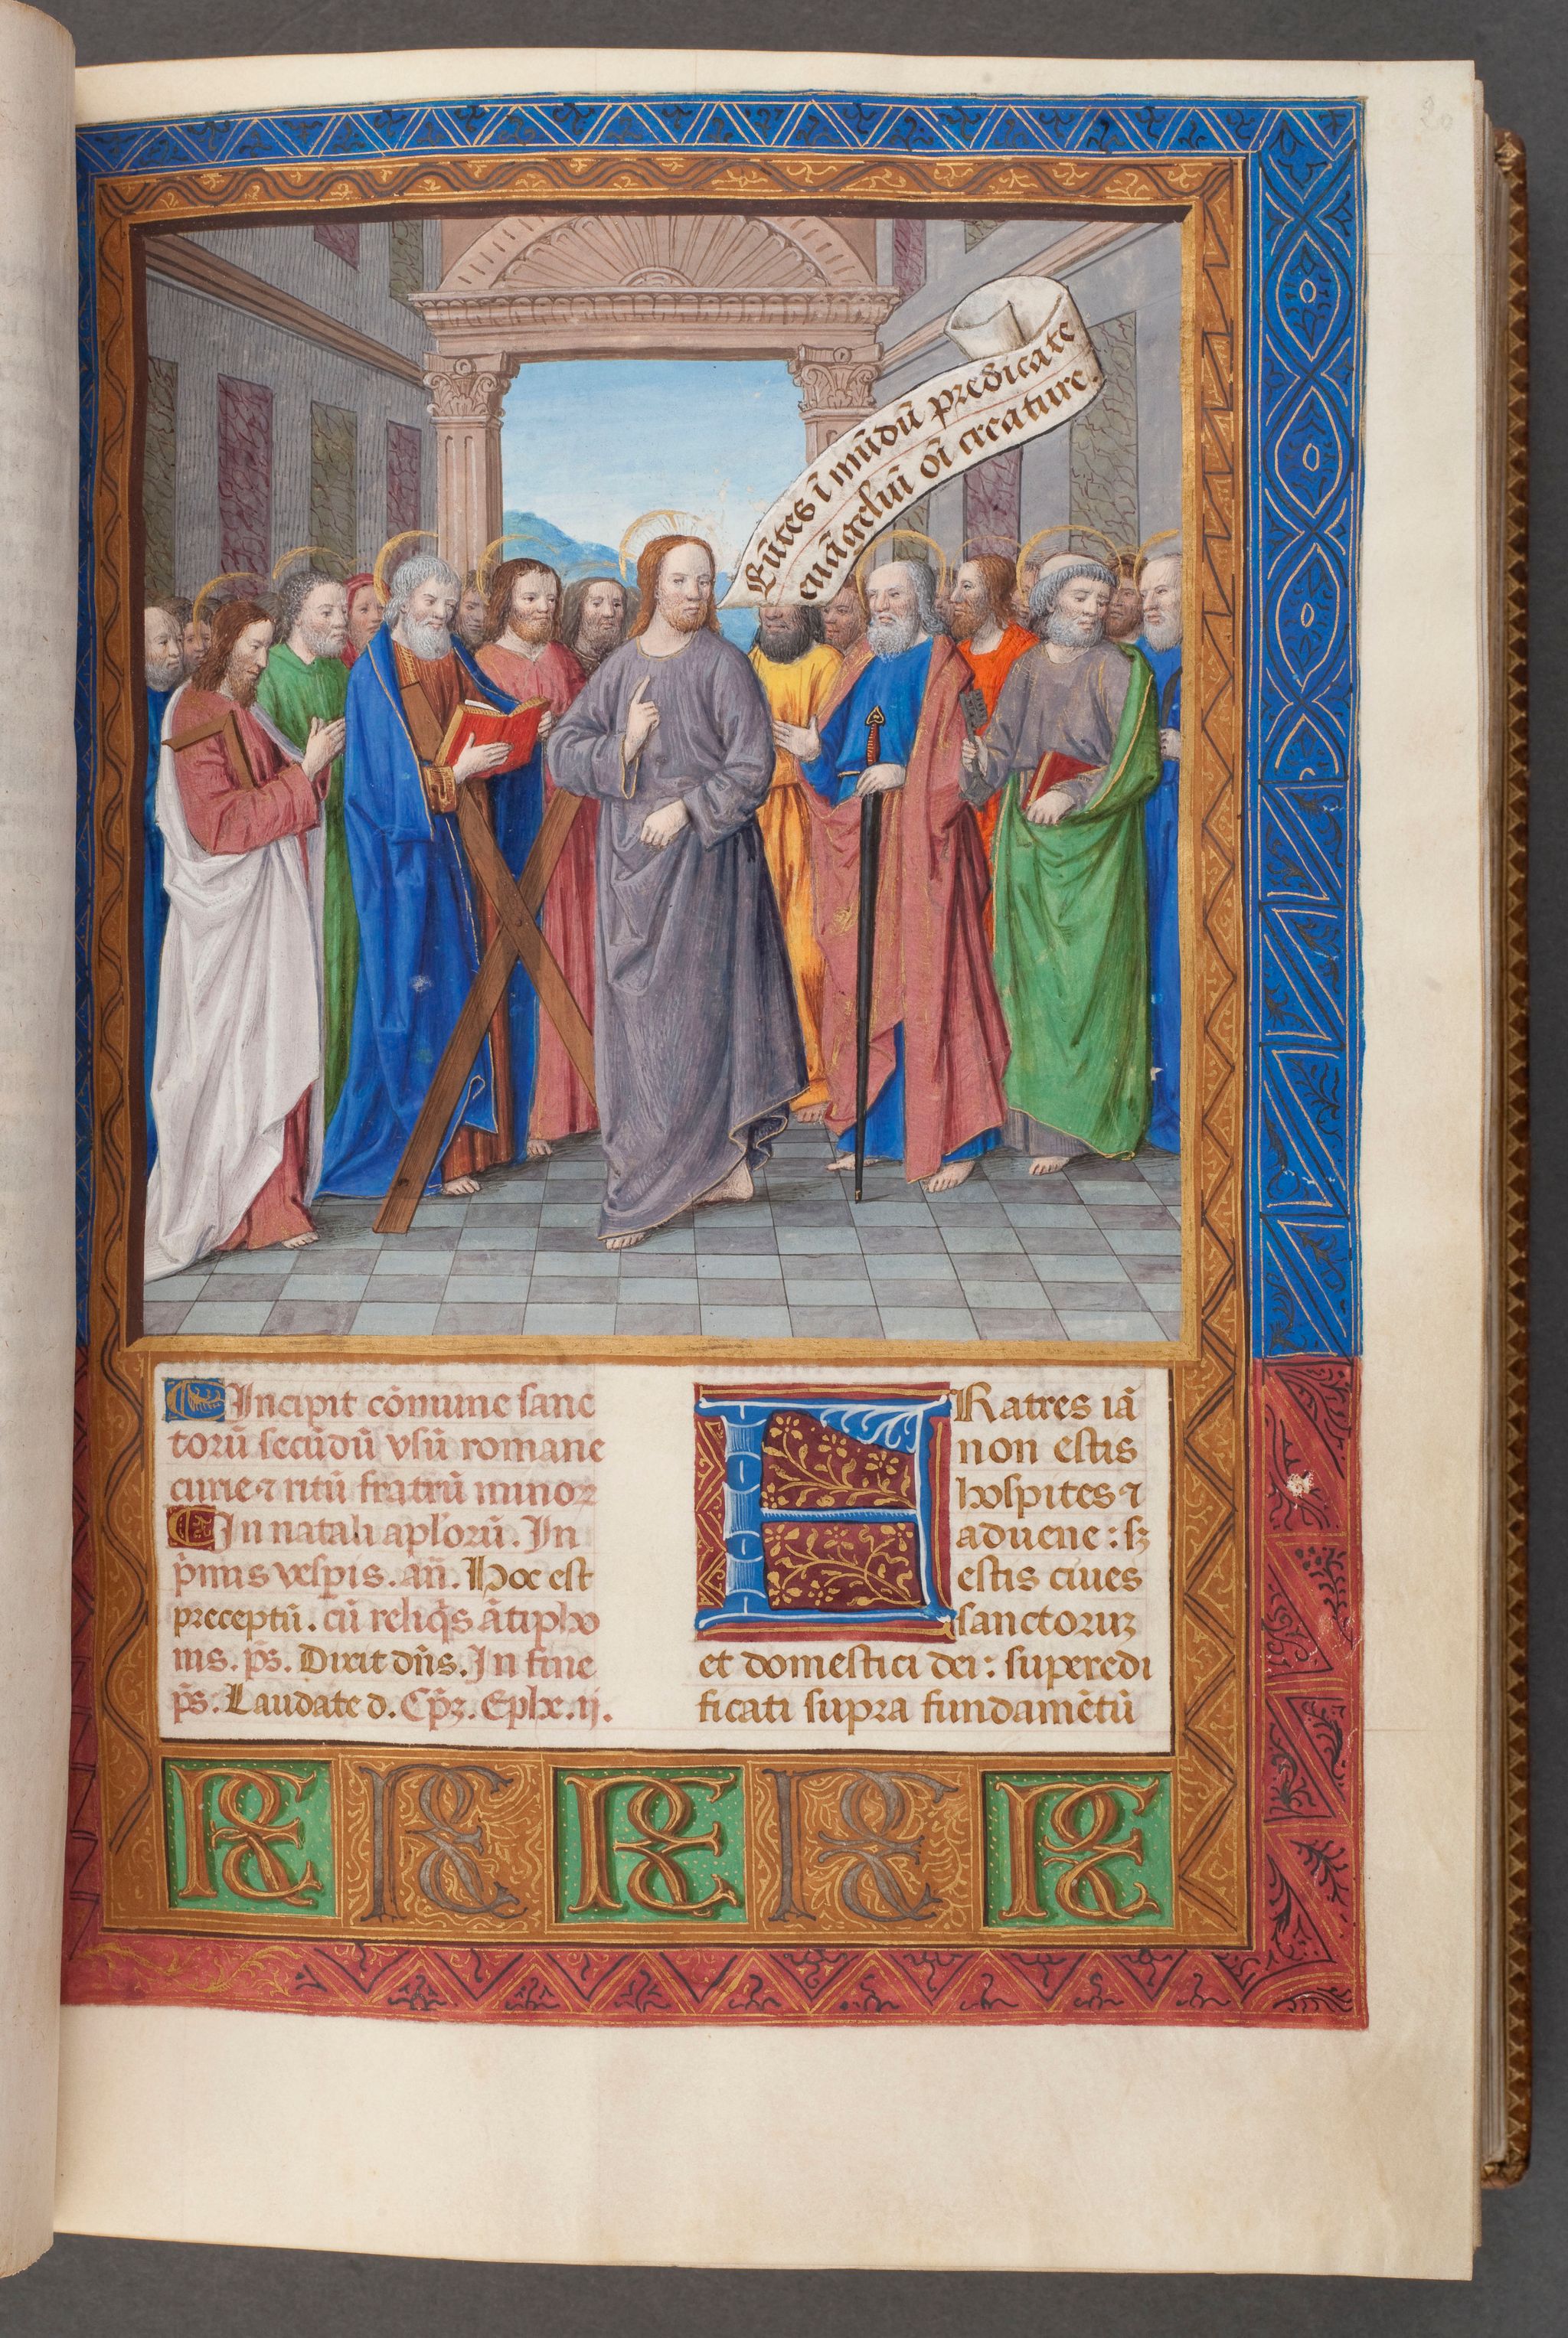 Eūtes ī mūdū predicate
euāgeliū oī creature.
Incipit cōmune sanc
torū secūdū vsū romane
curie ⁊ ritū fratrū minoꝝ
In natali apl'orū. In
p̄mis vesp̄is. an̄. Hoc est
preceptū. cū reliq̄s ātipho
nis. p̄s. Dixit dn̄s. In fine
p̄s. Laudate d. Cp̄ꝫ. Ephe. ij.
FRatres iā
non estis
hospites ⁊
aduene: sꝫ
estis ciues
sanctoruꝫ
et domestici dei: superedi
ficati supra fundamētū